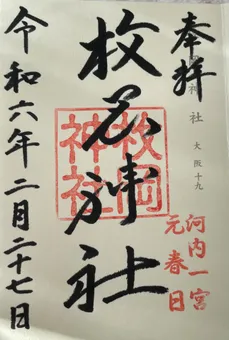 奉拝
神社
大阪十九
河内一宮
元春日
枚岡神社
枚岡神社
令和六年二月二十七日